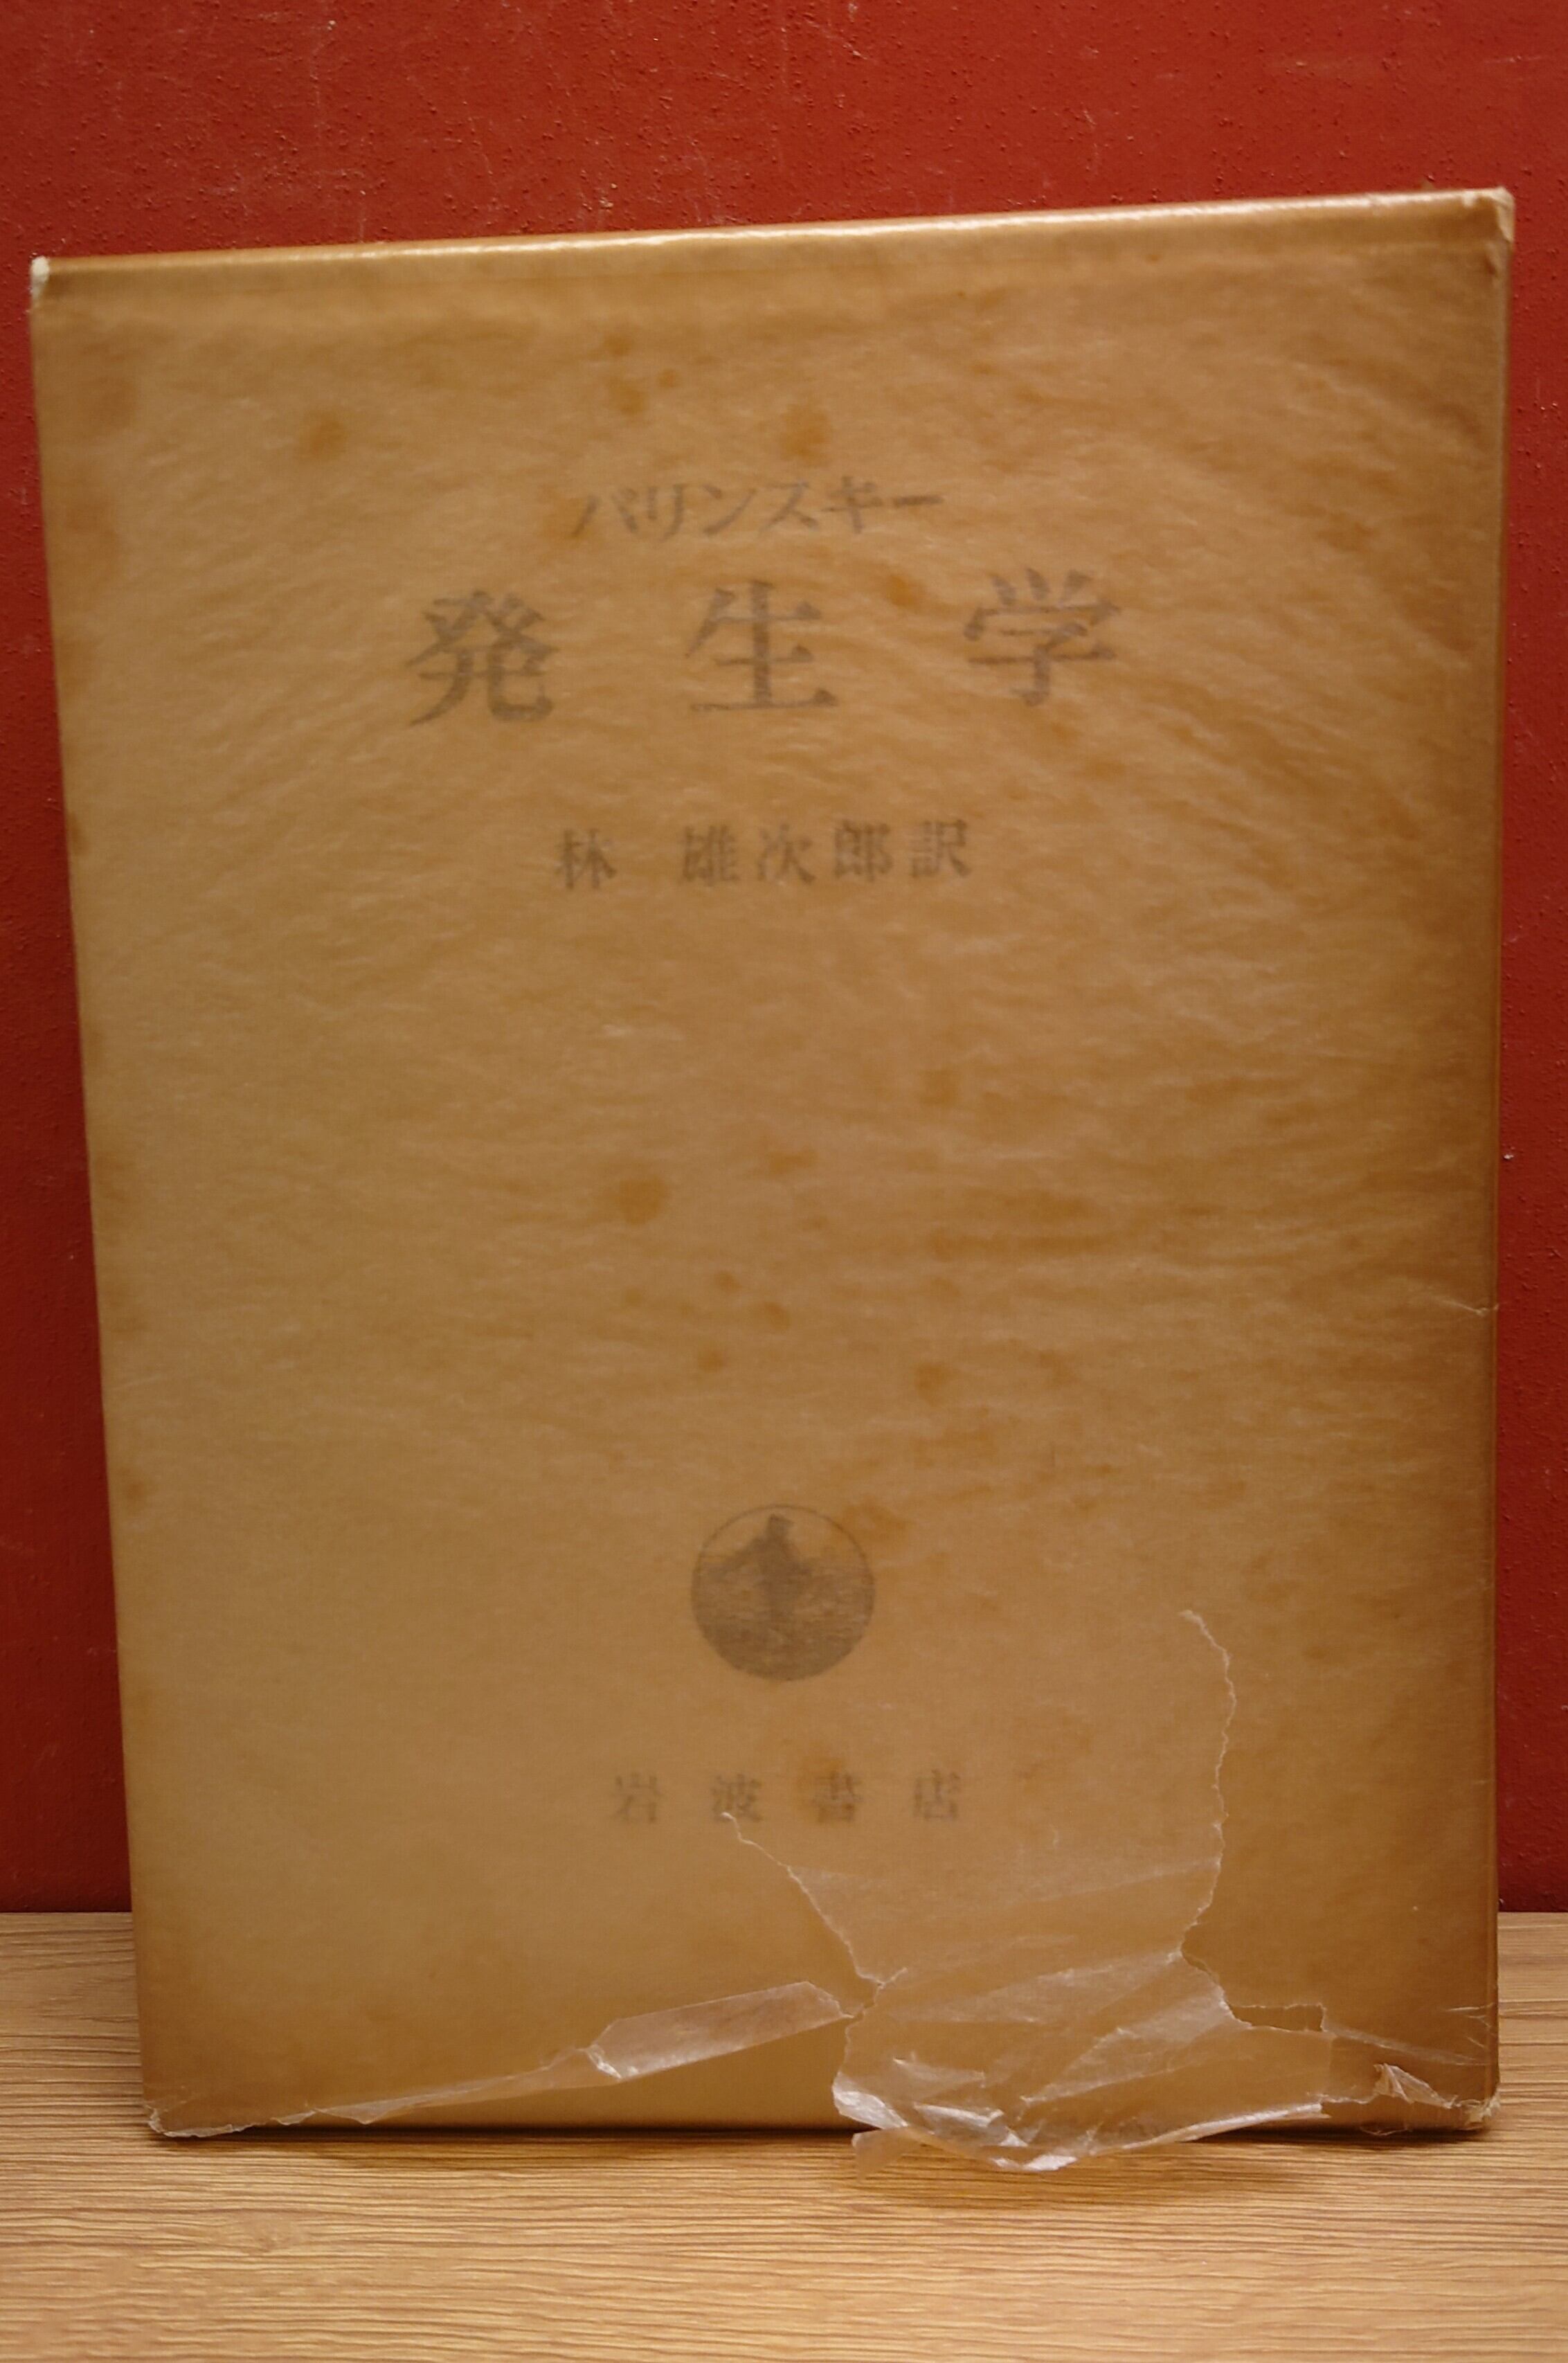 バリンスキー
発生学
林 雄次郎訳
岩波書店